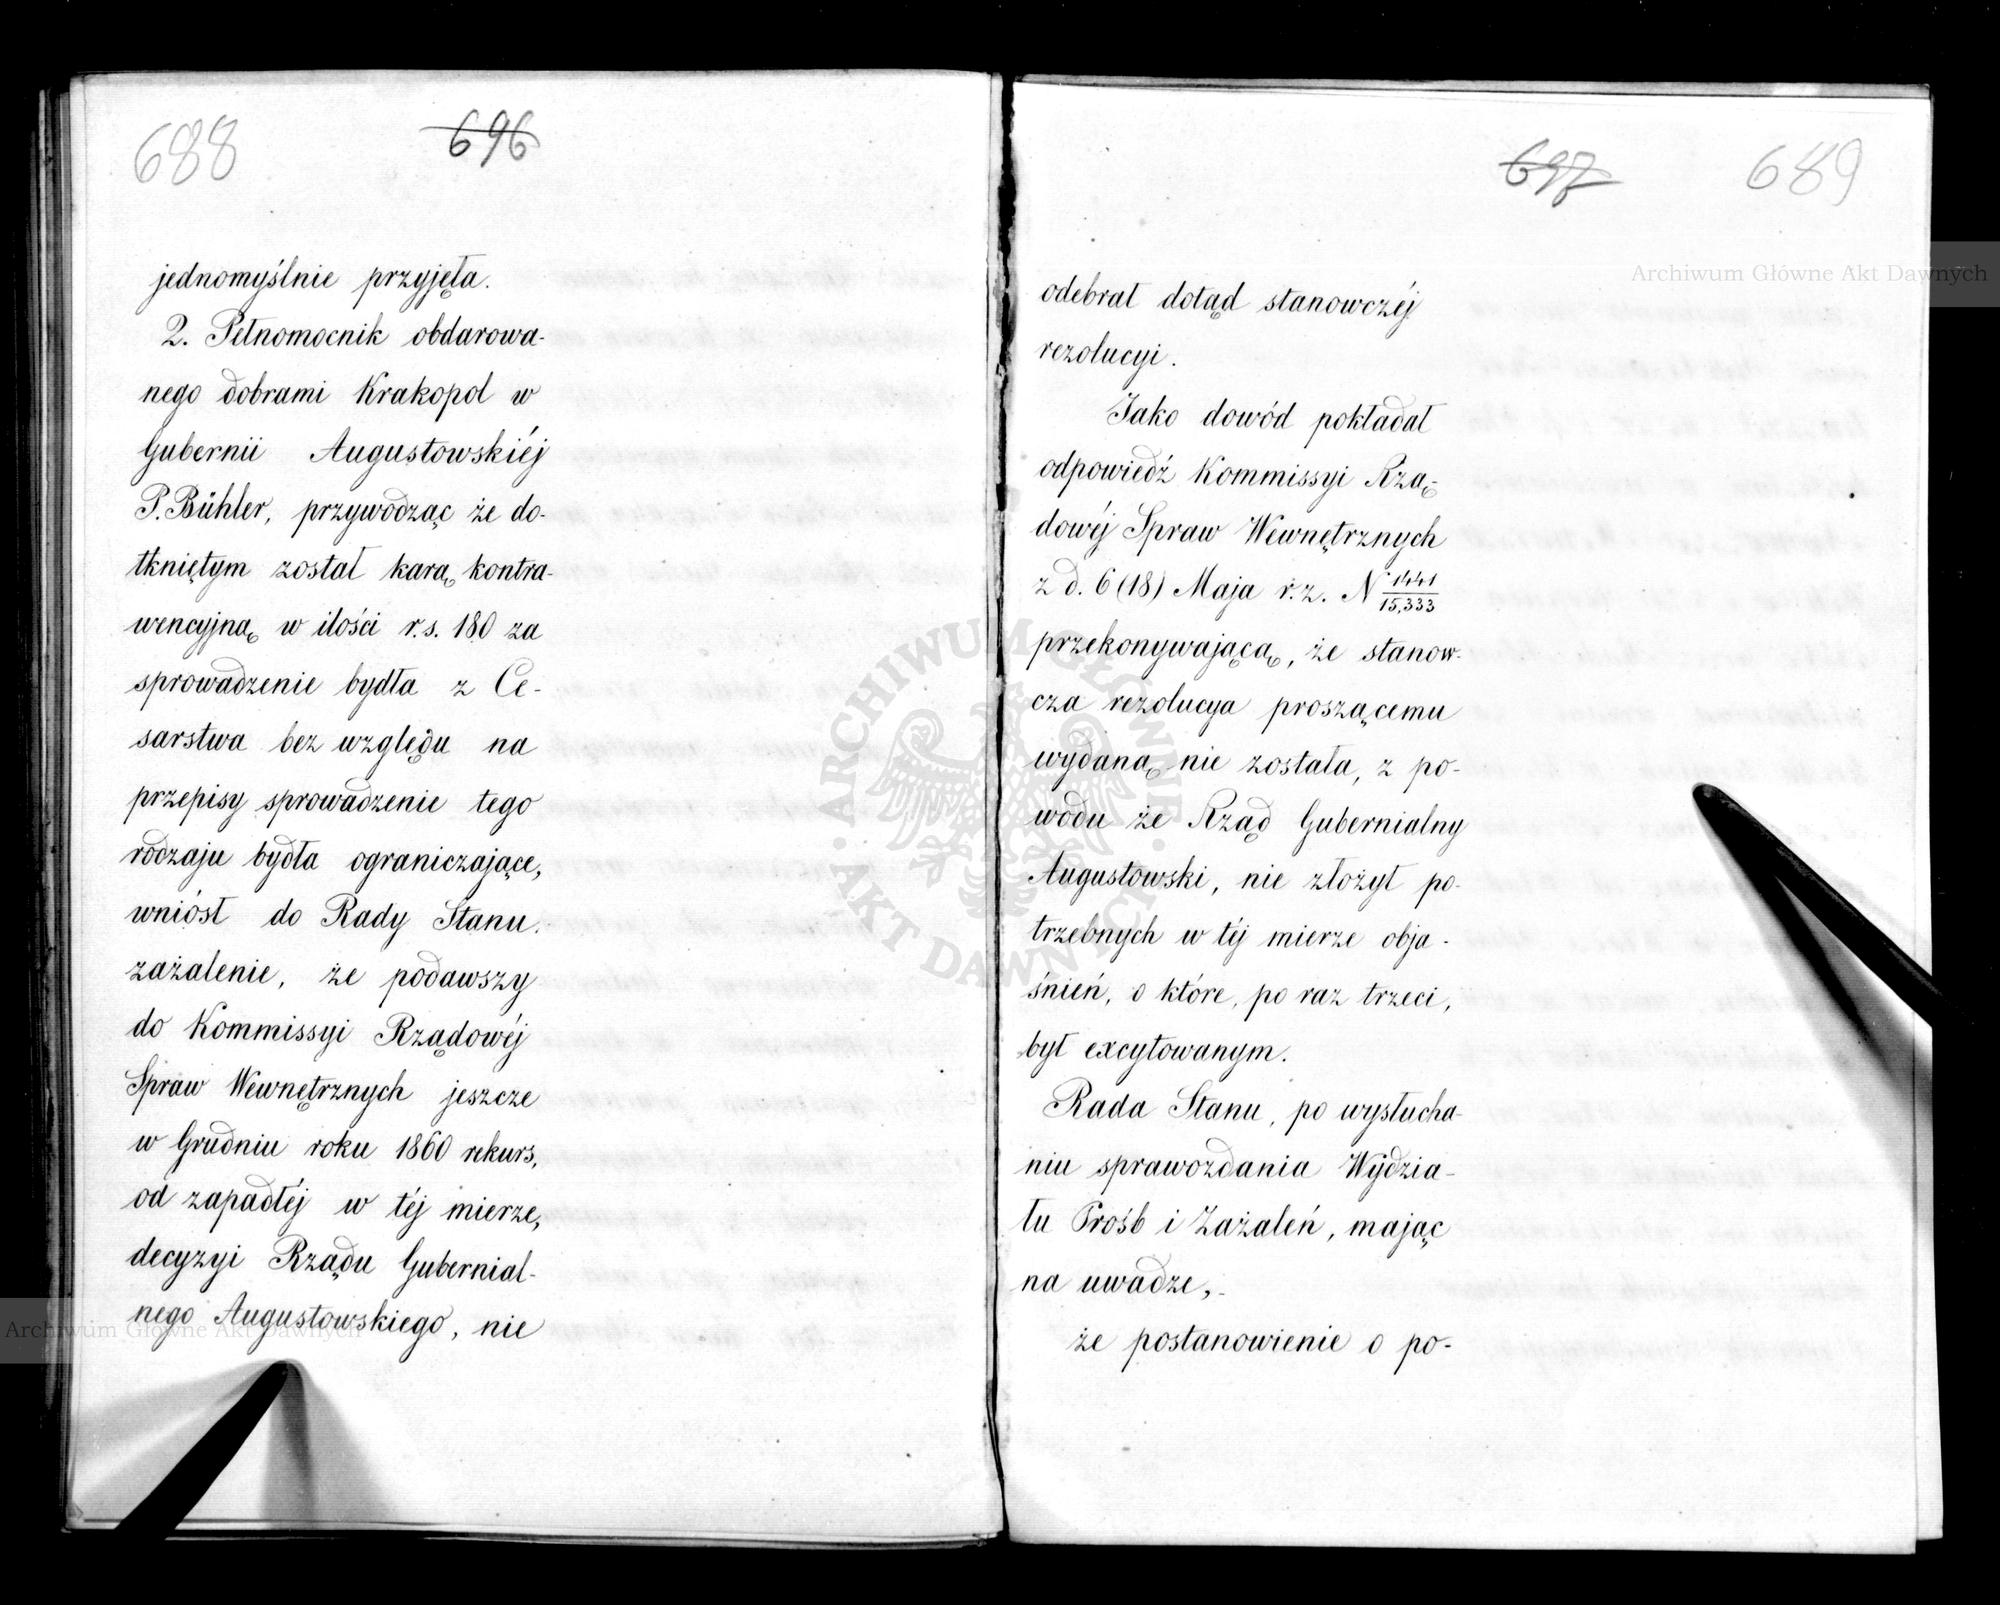 688
696
jednomyślnie przyjęta.
2. Pełnomocnik obdarowa-
nego dobrami Krakopol w
Gubernii Augustowskiéj
P. Bühler, przywodząc że do-
tkniętym został karą kontra-
wencyjną w ilości r.s. 180 za
sprowadzenie bydła z Ce-
sarstwa bez względu na
przepisy sprowadzenie tego
rodzaju bydła ograniczające,
wniósł do Rady Stanu
zażalenie, że podawszy
do Kommissyi Rządowéj
Spraw Wewnętrznych jeszcze
w Grudniu roku 1860 rekurs,
od zapadłéj w téj mierze,
decyzyi Rządu Gubernial-
nego Augustowskiego, nie
697
689
odebrał dotąd stanowczéj
rezolucyi.
Jako dowód pokładał
odpowiedź Kommissyi Rzą-
dowéj Spraw Wewnętrznych
z d. 6 (18) Maja r.z. N 1441/15,333
przekonywającą, że stanow-
cza rezolucya proszącemu
wydaną nie została, z po-
wodu że Rząd Gubernialny
Augustowski, nie złożył po-
trzebnych w téj mierze obja-
śnień, o które, po raz trzeci,
był excytowanym.
Rada Stanu, po wysłucha-
niu sprawozdania Wydzia-
łu Prośb i Zażaleń, mając
na uwadze,
że postanowienie o po-
Archiwum Główne Akt Dawnych
ARCHIWUM GŁÓWNE AKT DAWNYCH
Archiwum Główne Akt Dawnych